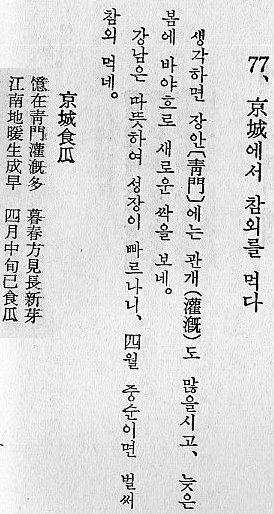 77、京城에서 참외를 먹다
생각하면 장안〔靑門〕에는 관개(灌漑)도 많을시고、늦은
봄에 바야흐로 새로운 싹을 보네。
강남은 따뜻하여 성장이 빠르나니、四월 중순이면 벌써
참외 먹네。
京城食瓜
憶在靑門灌漑多 暮春方見長新芽
江南地暖生成早 四月中旬已食瓜